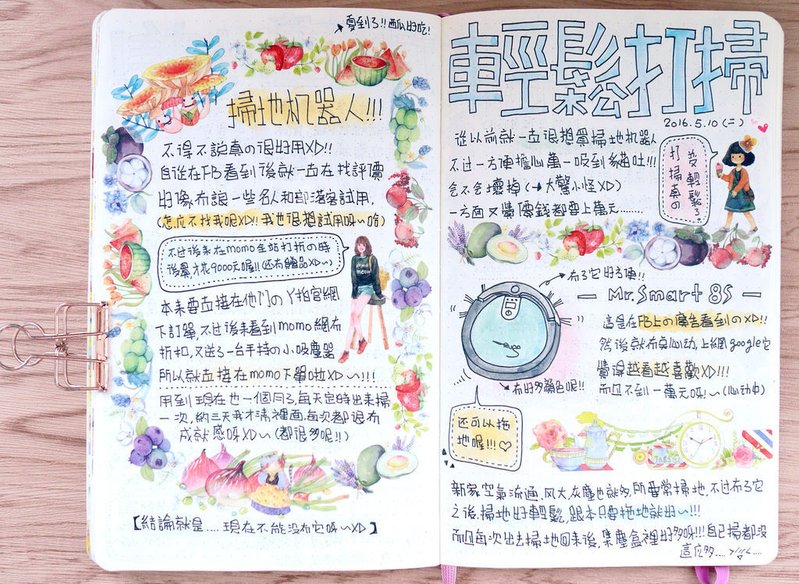 看到了!!西瓜好吃!
掃地机器人!!!
不得不說真の很好用XD!!
自從在FB看到後就一直在找評價
好像有讓一些名人和部落客試用,
(怎麼不找我呢XD!! 我也很想試用呀~唷)
不过後來在momo全站打折の時
後最才花9000元喔!!(还有贈品XD~)
本來要直接在他們のY拍官網
下訂單,不过後來看到momo網有
折扣,又送了一台手持の小吸塵器
所以就直接在momo下單啦XD~!!!
用到現在也一個月了,每天定時出來掃
一次,約三天我才清裡面,每次都很有
成就感呀XD~(都很多呢!!)
【結論就是.....現在不能沒有它呀~XD】
輕鬆打掃
2016.5.10(二)
從以前就一直很想買掃地机器人
不过一方便擔心萬一吸到貓吐!!
會不會壞掉(→大驚小怪XD)
一方面又覺價錢都要上萬元........
打掃真の
变輕鬆了
有了它好方便!!
Mr.Smart 8S
這是在FB上の廣告看到のXD!!
然後就有点心动,上網google它
覺得越看越喜歡XD!!!
而且不到一萬元呀!~(心动中)
有好多顏色呢!!
还可以拖
地喔!!!♡
新家空氣流通,风大,灰塵也就多,所要常掃地,不过有了它
之後,掃地好輕鬆,跟本只要拖地就好~!!!
而且每次出去掃地回來後,集塵盒裡好多呀!!!自己掃都沒
這麼多....